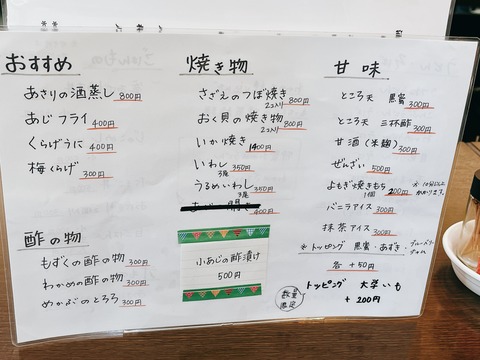 おすすめ
あさりの酒蒸し 800円
あじフライ 400円
くらげうに 400円
梅くらげ 300円
酢の物
もずくの酢の物 300円
わかめの酢の物 300円
めかぶのとろろ 300円
焼き物
さざえのつぼ焼き 800円
2コ入り
おく貝の焼き物 800円
2コ入り
いか焼き 1400円
いわし 350円
3尾
うるめいわし 350円
3尾
400円
小あじの酢漬け
500円
甘味
ところ天 黒蜜 300円
ところ天 三杯酢 300円
甘酒(米麹) 300円
ぜんざい 500円
よもぎ焼きもち 200円
1個
※10分以上かかります。
バニラアイス 300円
抹茶アイス 300円
※トッピング 黒蜜・あずき・ブルーベリージャム
各 +50円
数量限定
トッピング 大学いも
+200円